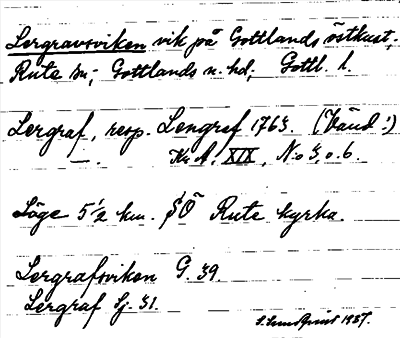 Lergravsviken vik på Gottlands östkust;
Rute sn; Gottlands n. hd; Gottl. l.
Lergraf, resp. Lengraf 1763. (Vänd!)
Kr. A. XIX, No 3, o. 6.
Läge 5 1/2 km. SÖ Rute kyrka.
Lergrafsviken G. 39.
Lergraf Sj. 31.
S. Sundquist 1937.